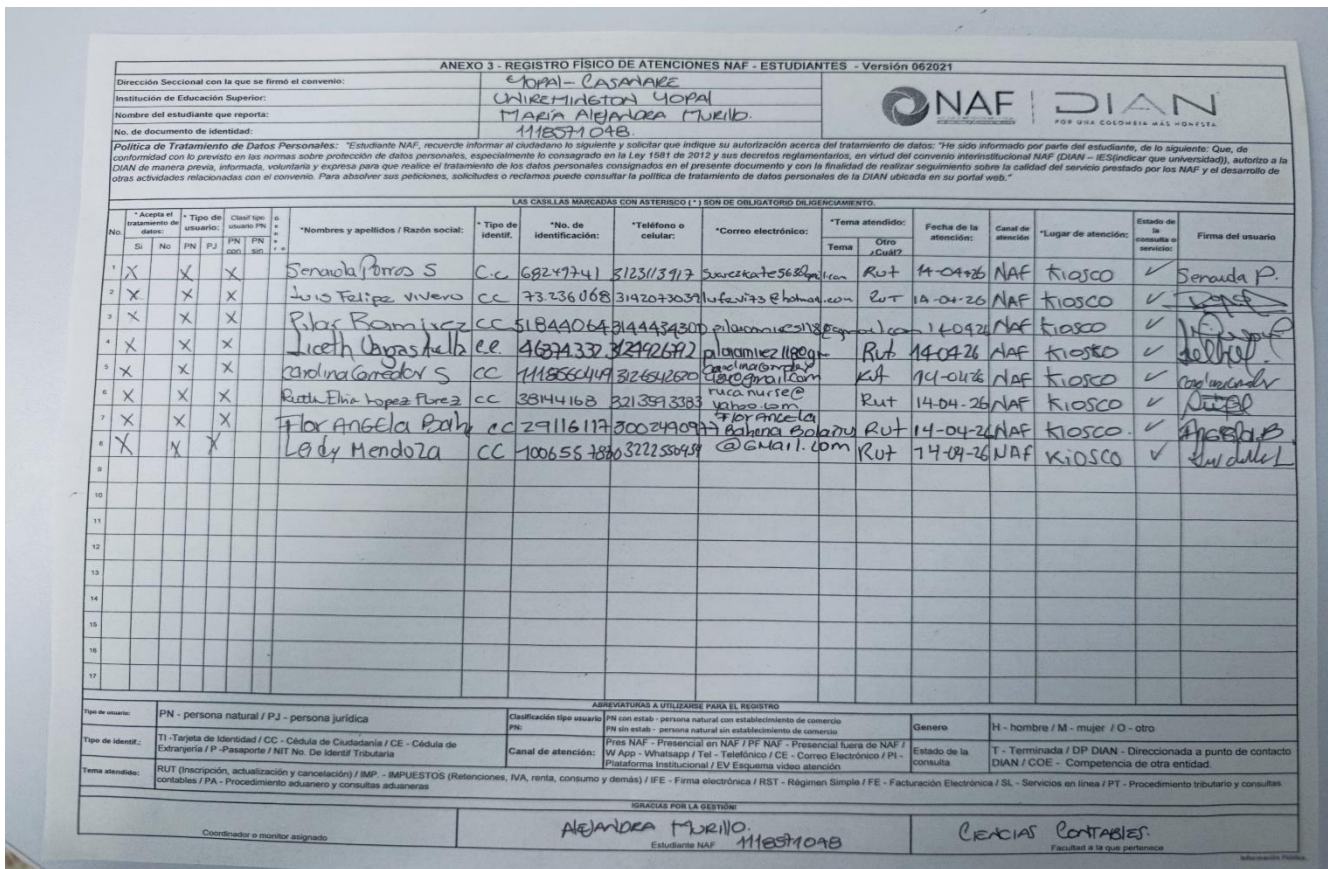 ANEXO 3 - REGISTRO FÍSICO DE ATENCIONES NAF - ESTUDIANTES - Versión 062021
Dirección Seccional con la que se firmó el convenio: YOPAL - CASANARE
Institución de Educación Superior: UNIREMINGTON YOPAL
Nombre del estudiante que reporta: MARÍA ALEJANDRA MURILLO.
No. de documento de identidad: 1118571048.
NAF DIAN
POR UNA COLOMBIA MÁS HONESTA
Política de Tratamiento de Datos Personales: "Estudiante NAF, recuerde informar al ciudadano lo siguiente y solicitar que indique su autorización acerca del tratamiento de datos: "He sido informado por parte del estudiante, de lo siguiente: Que, de
conformidad con lo previsto en las normas sobre protección de datos personales, especialmente lo consagrado en la Ley 1581 de 2012 y sus decretos reglamentarios, en virtud del convenio interinstitucional NAF (DIAN – IES(indicar que universidad)), autorizo a la
DIAN de manera previa, informada, voluntaria y expresa para que realice el tratamiento de los datos personales consignados en el presente documento y con la finalidad de realizar seguimiento sobre la calidad del servicio prestado por los NAF y el desarrollo de
otras actividades relacionadas con el convenio. Para absolver sus peticiones, solicitudes o reclamos puede consultar la política de tratamiento de datos personales de la DIAN ubicada en su portal web."
LAS CASILLAS MARCADAS CON ASTERISCO ( * ) SON DE OBLIGATORIO DILIGENCIAMIENTO.
No. * Acepta el tratamiento de datos: * Tipo de usuario: Clasif tipo usuario PN *Nombres y apellidos / Razón social: * Tipo de identif. *No. de identificación: *Teléfono o celular: *Correo electrónico: *Tema atendido: Fecha de la atención: Canal de atención *Lugar de atención: Estado de la consulta o servicio: Firma del usuario
Si No PN PJ PN con PN sin Tema Otro ¿Cuál?
1 X X X Senaida Porras S C.c 68249741 3123113917 Rut 14-04-26 NAF KIOSCO ✓ Senaida P.
2 X X X Luis Felipe Vivero CC 73.236068 3142073039 Rut 14-04-26 NAF KIOSCO ✓
3 X X X Pilar Ramirez CC 51844064 14-04-26 NAF KIOSCO ✓
4 X X X Liceth Vargas c.c. Rut 14-04-26 NAF KIOSKO ✓
5 X X X Carolina Corredor S CC 1118560449 3126542620 Rut 14-04-26 NAF KIOSCO ✓
6 X X X Ruth Elvia Lopez Florez CC 38144168 3213593383 rucanurse@yahoo.com Rut 14-04-26 NAF KIOSCO ✓
7 X X X Flor Angela Bah cc 29116117 Flor Angela Bahena Bolaños @GMail.com Rut 14-04-26 NAF KIOSCO. ✓ Angela B
8 X X X Leidy Mendoza CC 3222550959 Rut 14-04-26 NAF KIOSCO ✓
9
10
11
12
13
14
15
16
17
ABREVIATURAS A UTILIZARSE PARA EL REGISTRO
Tipo de usuario: PN - persona natural / PJ - persona jurídica
Clasificación tipo usuario PN: PN con estab - persona natural con establecimiento de comercio
PN sin estab - persona natural sin establecimiento de comercio
Genero H - hombre / M - mujer / O - otro
Tipo de identif.: TI -Tarjeta de Identidad / CC - Cédula de Ciudadanía / CE - Cédula de
Extranjería / P -Pasaporte / NIT No. De Identif Tributaria
Canal de atención: Pres NAF - Presencial en NAF / PF NAF - Presencial fuera de NAF /
W App - Whatsapp / Tel - Telefónico / CE - Correo Electrónico / PI -
Plataforma Institucional / EV Esquema video atención
Estado de la consulta T - Terminada / DP DIAN - Direccionada a punto de contacto
DIAN / COE - Competencia de otra entidad.
Tema atendido: RUT (Inscripción, actualización y cancelación) / IMP. - IMPUESTOS (Retenciones, IVA, renta, consumo y demás) / IFE - Firma electrónica / RST - Régimen Simple / FE - Facturación Electrónica / SL - Servicios en línea / PT - Procedimiento tributario y consultas
contables / PA - Procedimiento aduanero y consultas aduaneras
¡GRACIAS POR LA GESTIÓN!
Coordinador o monitor asignado
ALEJANDRA MURILLO.
Estudiante NAF 1118571048
CIENCIAS CONTABLES.
Facultad a la que pertenece
Información Pública